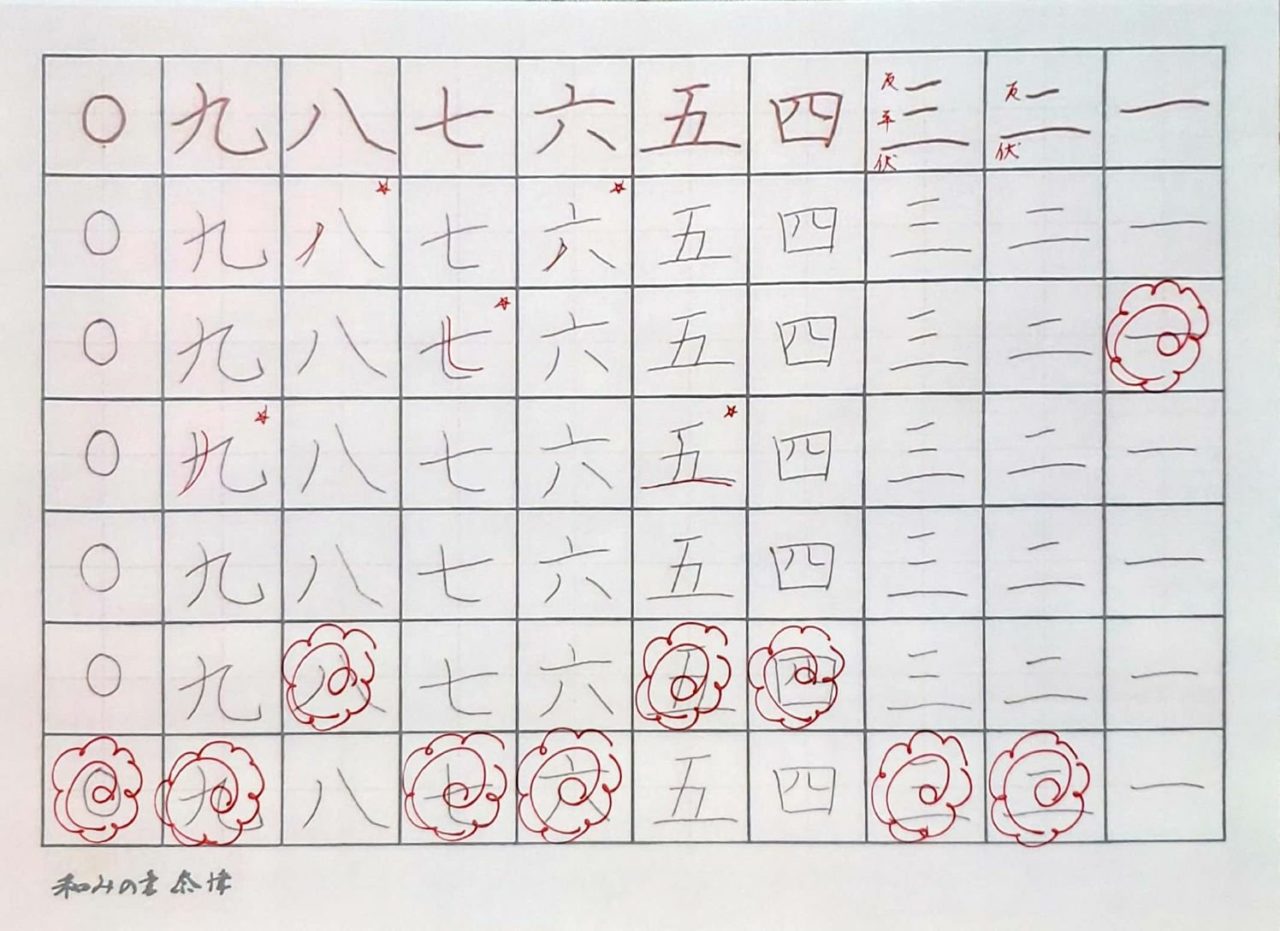 一一一一一一一
反
伏
二二二二二二二
反
平
伏
三三三三三三三
四四四四四四四
五五五五五五五
六六六六六六六
七七七七七七七
八八八八八八八
九九九九九九九
〇〇〇〇〇〇〇
和みの書